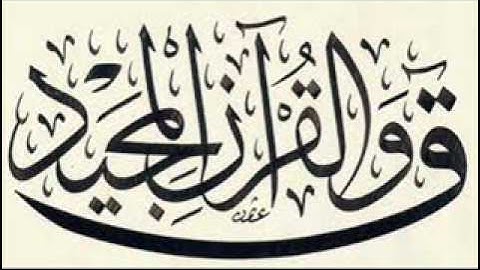 قۤ وَالْقُرْآنِ الْمَجِيْدِ